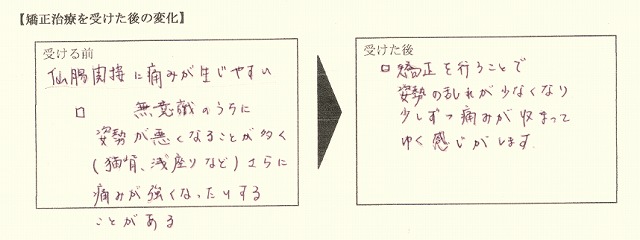 【矯正治療を受けた後の変化】
受ける前
仙腸関接に痛みが生じやすい
□ 無意識のうちに
姿勢が悪くなることが多く
(猫背、浅座りなど)さらに
痛みが強くなったりする
ことがある
受けた後
□ 矯正を行うことで
姿勢の乱れが少なくなり
少しずつ痛みが収まって
ゆく感じがします